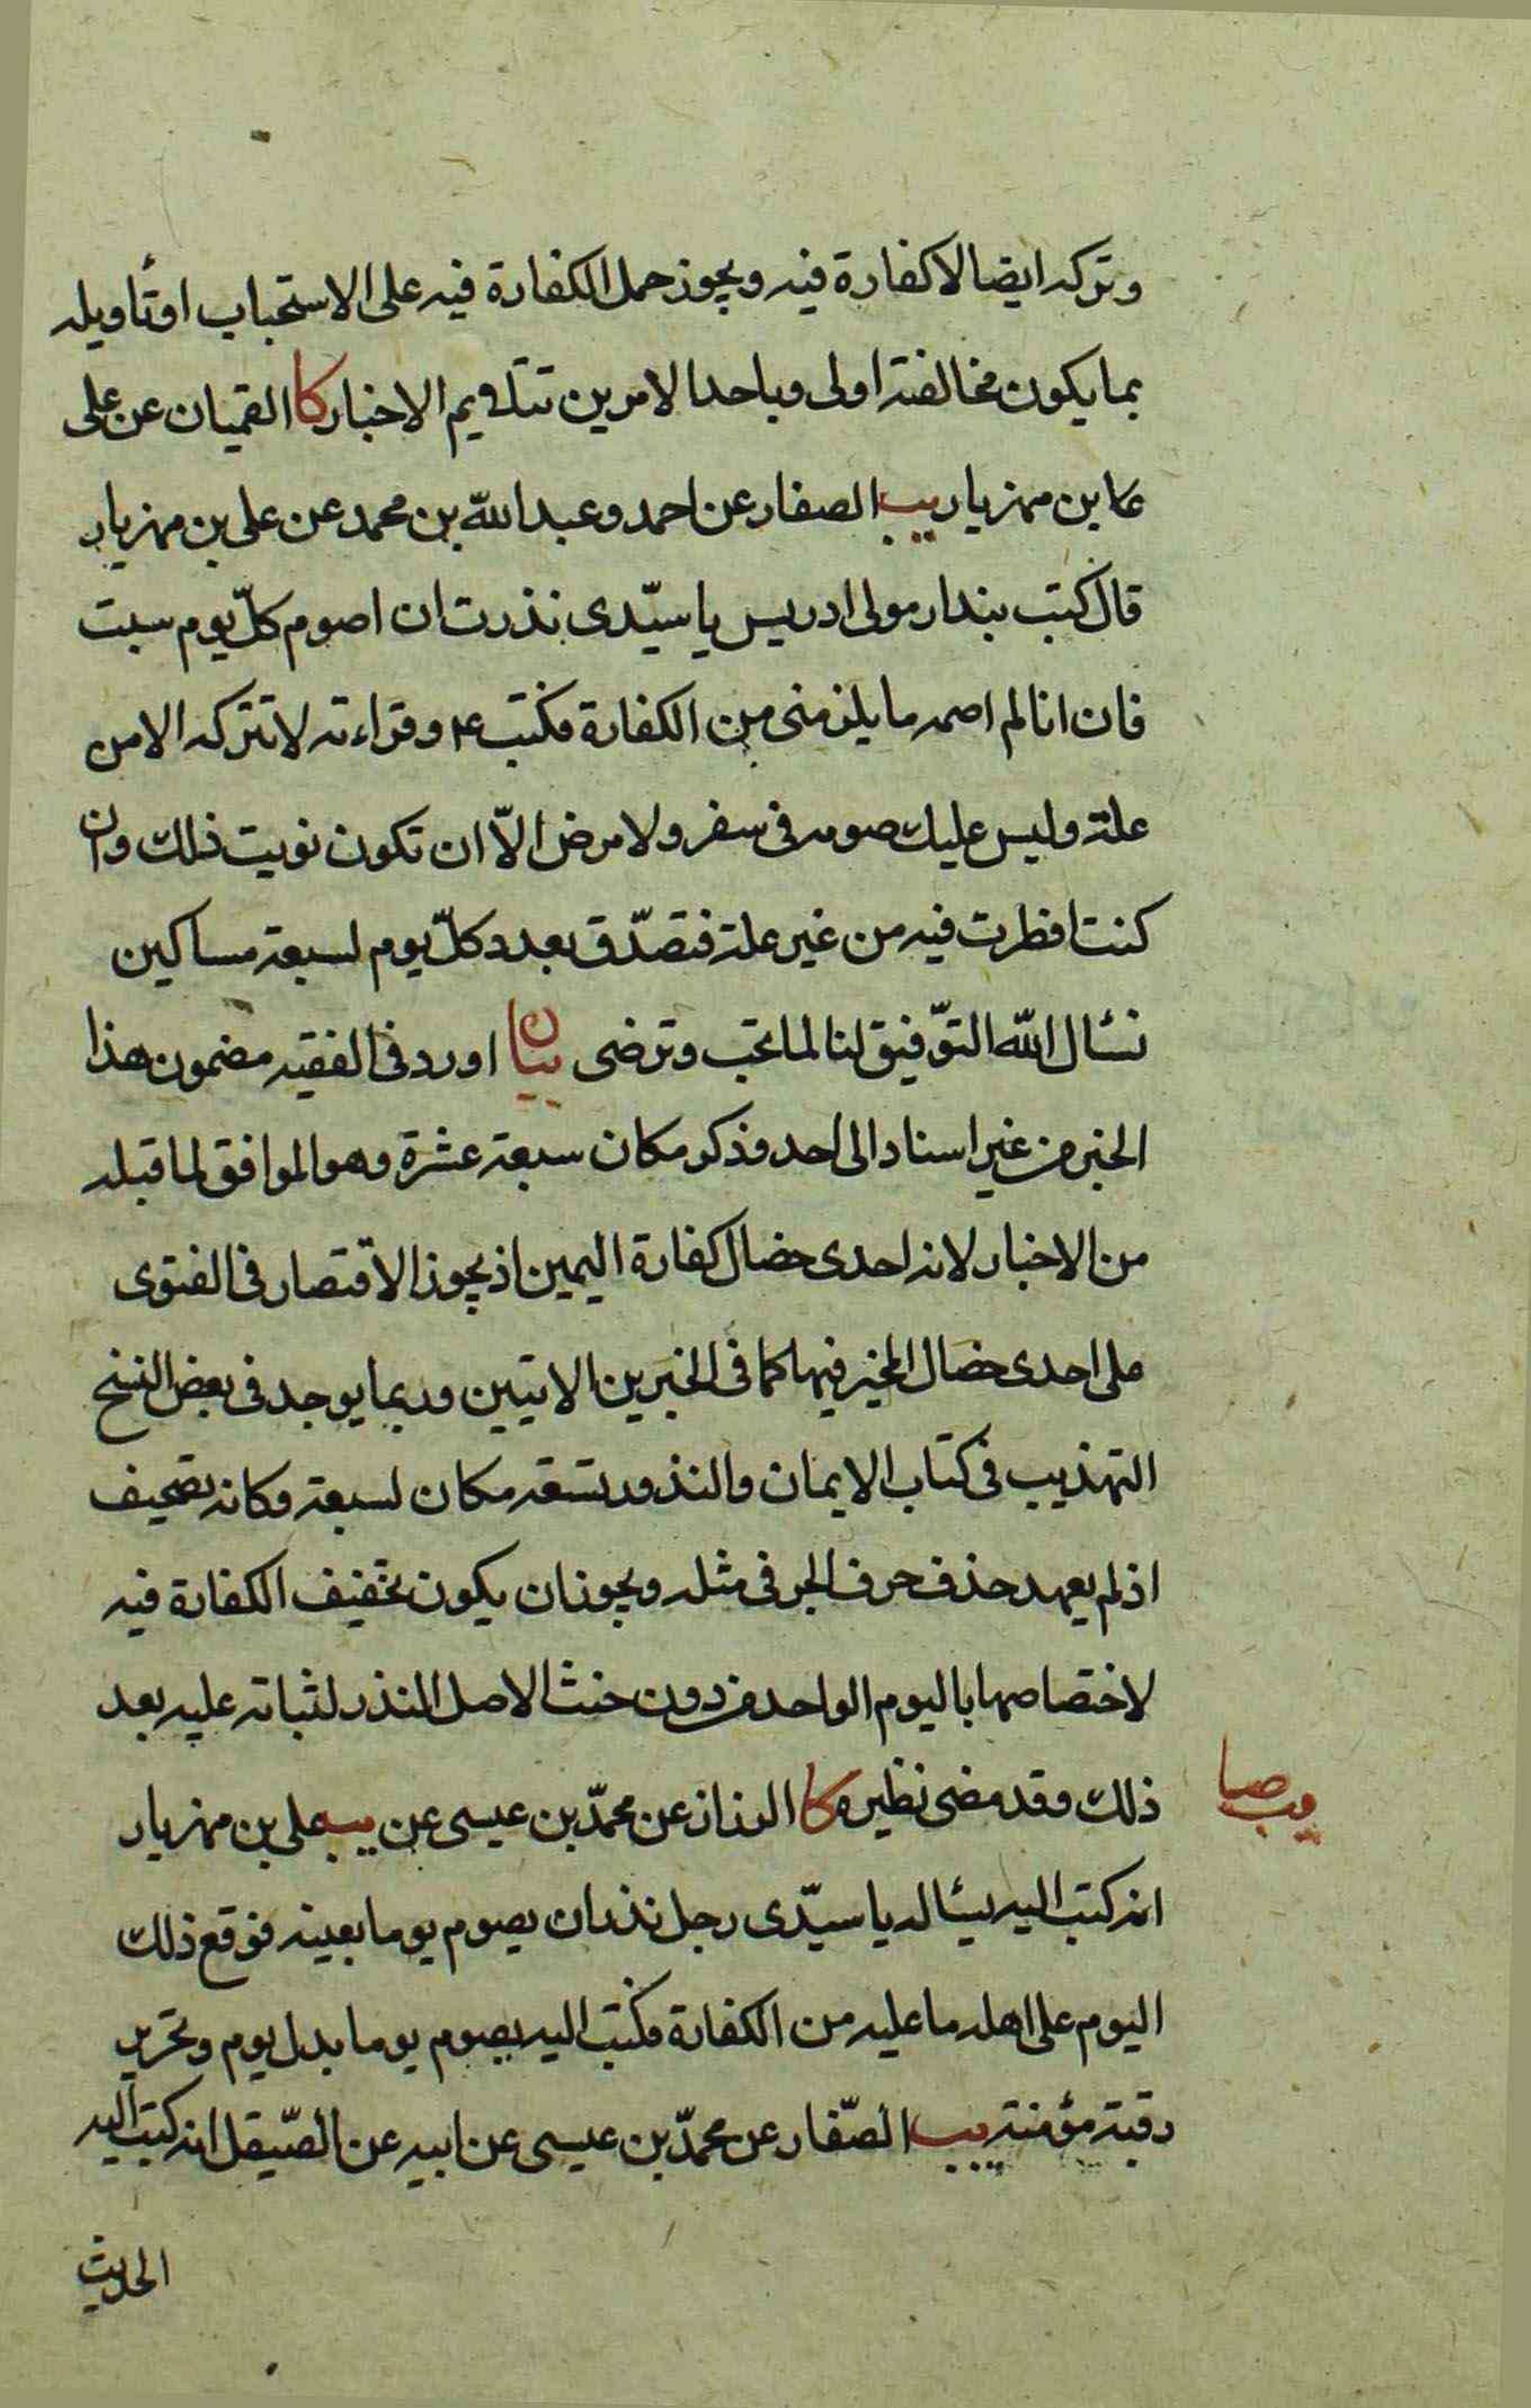 وتركه ايضا لاكفارة فيه ويجوز حمل الكفارة فيه على الاستحباب او تأويله
بما يكون مخالفته اولى وباحد الامرين تتلاويم الاخبار كا القميان عن على
عا بن مهزيار يب الصفار عن احمد وعبد الله بن محمد عن على بن مهزيار
قال كتب بندار مولى ادريس يا سيّدى نذرت ان اصوم كلّ يوم سبت
فان انا لم اصمه ما يلزمنى من الكفارة فكتب ع وقراءته لا تتركه الا من
علة وليس عليك صومه فى سفر ولا مرض الّا ان تكون نويت ذلك وان
كنت افطرت فيه من غير علة فتصدّق بعدد كلّ يوم لسبعة مساكين
نسئال الله التوّفيق لنا لما تحب وترضى بيان اورد فى الفقيه مضمون هذا
الخبر من غير اسناد الى احد وذكر مكان سبعة عشرة وهو الموافق لما قبله
من الاخبار لانه احدى خصال كفارة اليمين اذ يجوز الاقتصار فى الفتوى
على احدى خصال المخير فيها كما فى الخبرين الاتيين وربما يوجد فى بعض النسخ
التهذيب فى كتاب الايمان والنذور تسعة مكان لسبعة وكانه تصحيف
اذ لم يعهد حذف حرف الجر فى مثله ويجوز ان يكون تخفيف الكفارة فيه
لاختصاصها باليوم الواحد من دون حنث لاصل النذر لثباته عليه بعد
ذلك وقد مضى نظيره كا الرزاز عن محمّد بن عيسى عن يب على بن مهزيار
يب صا
انه كتب اليه يسئاله يا سيّدى رجل نذر ان يصوم يوما بعينه فوقع ذلك
اليوم على اهله ما عليه من الكفارة فكتب اليه يصوم يوما بدل يوم وتحرير
رقبة مؤمنة يب الصّفار عن محمّد بن عيسى عن ابيه عن الصّيقل انه كتب اليه
الحديث